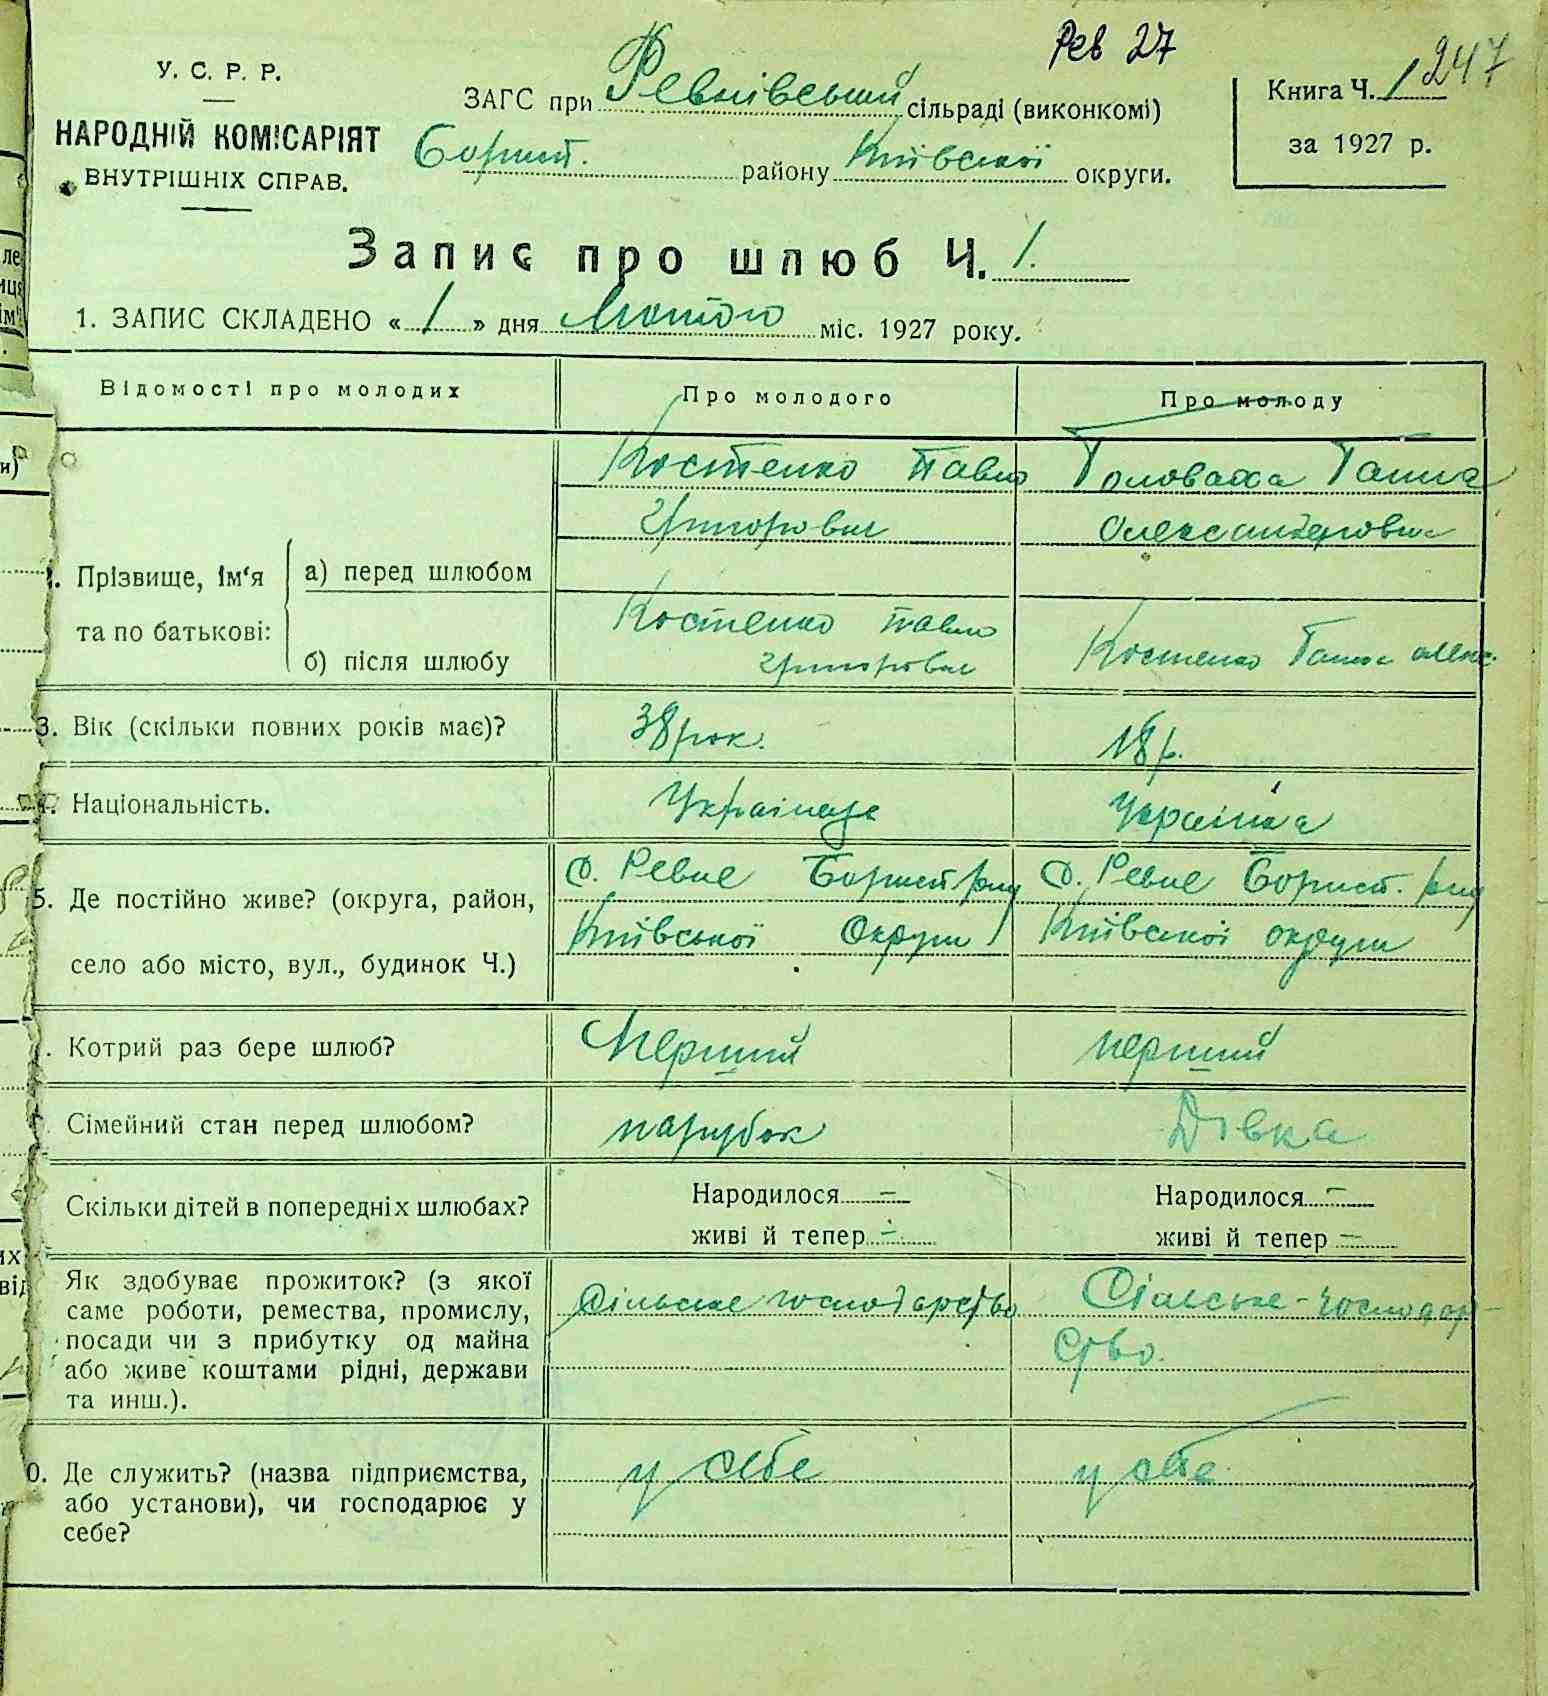 Рев 27
247
У. С. Р. Р.
НАРОДНІЙ КОМІСАРІЯТ
ВНУТРІШНІХ СПРАВ.
ЗАГС при Ревнівський сільраді (виконкомі)
Борисп. району Київської округи.
Книга Ч. 1
за 1927 р.
Запис про шлюб Ч. 1.
1. ЗАПИС СКЛАДЕНО « 1 » дня Лютого міс. 1927 року.
Відомості про молодих Про молодого Про молоду
Костенко Павло Головаха Ганна
Григорович Олександеровна
Прізвище, ім'я та по батькові:
а) перед шлюбом
б) після шлюбу
Костенко Павло Григорович
Костенко Ганна Олекс.
3. Вік (скільки повних років має)? 38 рок. 18 р.
Національність. Українець Українка
5. Де постійно живе? (округа, район,
село або місто, вул., будинок Ч.)
с. Ревне Борисп. рну
Київської Округи
с. Ревне Борисп. рну
Київської округи
Котрий раз бере шлюб? Перший перший
Сімейний стан перед шлюбом? парубок Дівка
Скільки дітей в попередніх шлюбах?
Народилося — Народилося —
живі й тепер — живі й тепер —
Як здобуває прожиток? (з якої
саме роботи, ремества, промислу,
посади чи з прибутку од майна
або живе коштами рідні, держави
та инш.).
Сільське господарство
Сільське-господар-
ство.
0. Де служить? (назва підприємства,
або установи), чи господарює у
себе?
у себе у себе